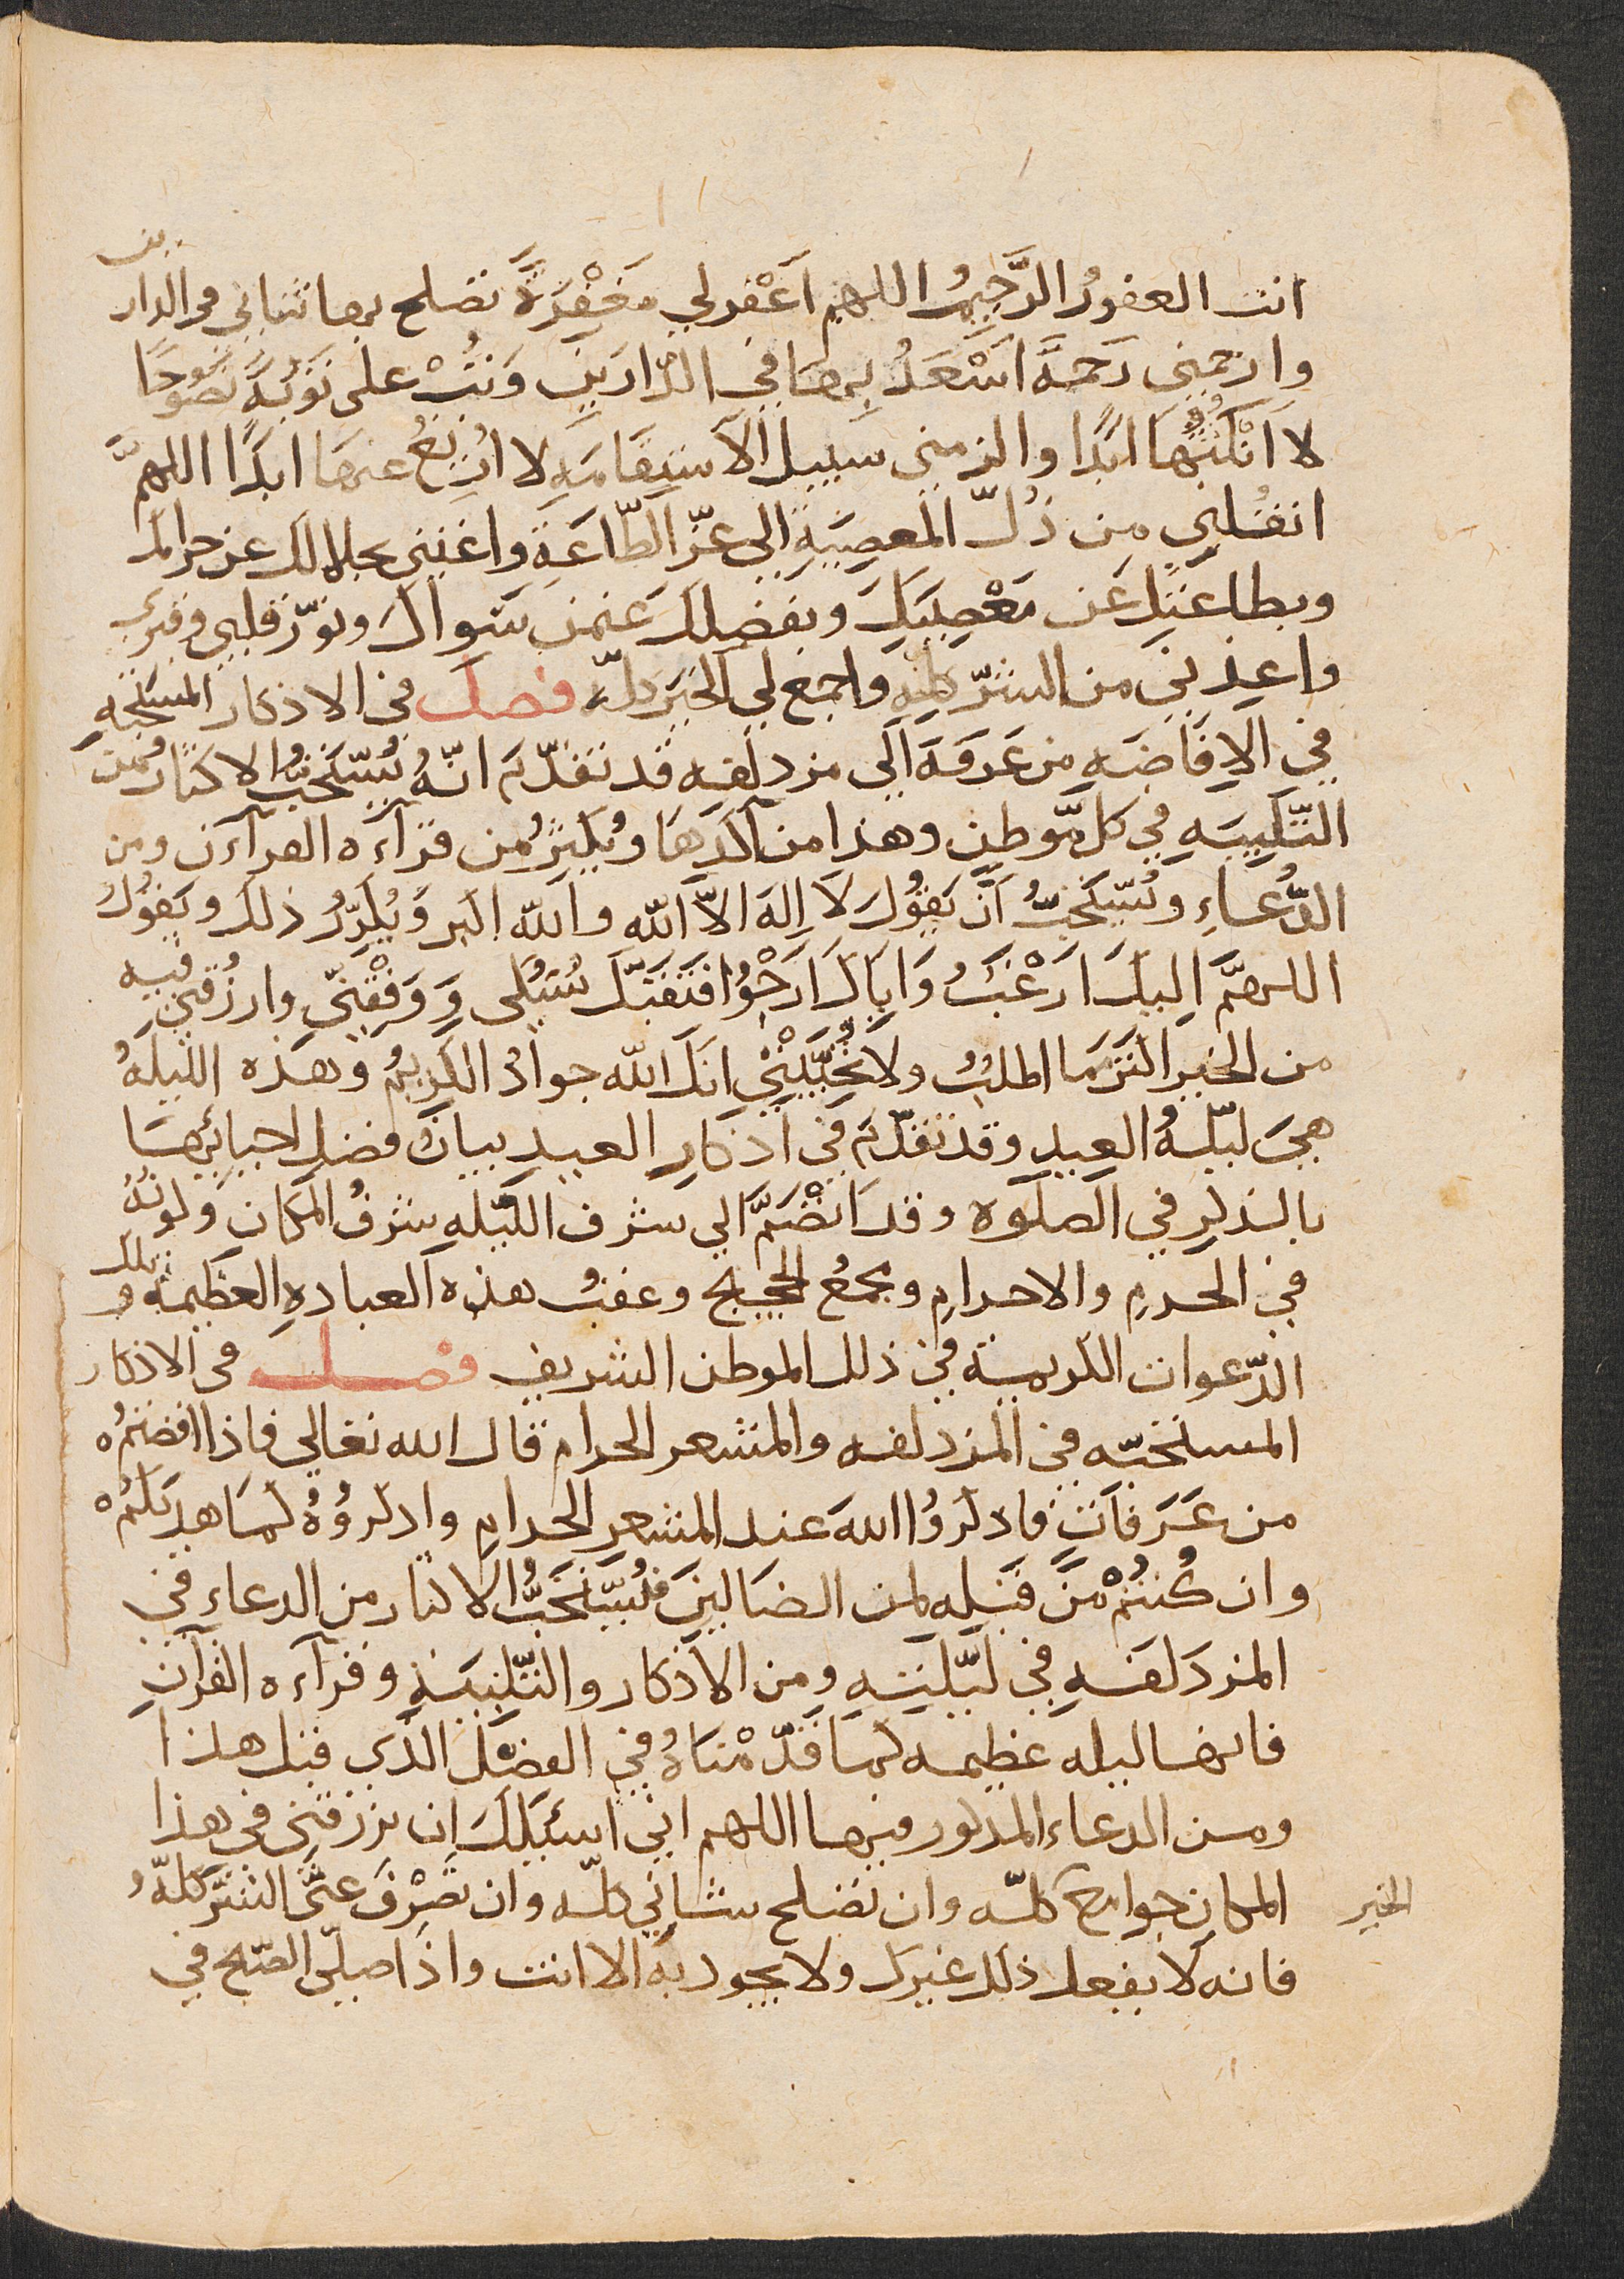 انت الغفورُ الرَّحِيمُ اللهم اَغْفر لي مَغْفِرَةً تصلح بها شاني في الدارين
وارحمني رَحمةً اَسْعَدُ بِهَا في الدّارَينِ وَتُبْ علي تَوْبَةً نصُوحًا
لا اَنْكُثُهَا ابَدًا والزمني سبيل الاستِقَامَةِ لا ازيغُ عنهَا ابدًا اللهمَّ
انقُلني من ذُلّ المعصِيَةِ الي عزّ الطّاعَةِ واغنني بحلالك عن حرامك
وبطاعتك عَن مَعْصِيَتِكَ وبفضلك عَمَّن سَواكَ ونوّر قلبي وقبري
واعِذني من الشرّ كلِّهِ واجمع لي الخيرَ كلّه فصل في الاذكار المستحبه
في الافَاضَهِ من عَرفَهَ الَي مزدلفه قد تقدّم انّهُ يُسْتَحَبُّ الاكثارُ من
التّلبيَهِ في كل مَوطنٍ وهذا من آكَدِهَا ويُكثِرُ من قرآءَه القرآءن ومن
الدُّعاءِ ويُسْتَحَبُّ اَن يَقُولَ لَا اِلهَ الاّ الله والله اكبر وَيُكرّرُ ذلك ويَقُولُ
اللهمَّ اِليكَ ارْغَبُ وَاِيَاكَ ارْجُوا فتَقَبَّل نُسُكي وَوَفِقْنِي وارزُقني فيه
من الخير اكثَرَ مَا اطلُبُ ولا تُخَيّبْنِي انك الله جوادُ الكريمُ وهَذه الليلَهُ
هيَ ليْلَهُ العِيدِ وقد تقدّم في اَذكارِ العيدِ بيانُ فضلِ احيائِهَا
بالذكرِ في الصلَوة وقد انْضَمَّ الي شرف اللّيلهِ شرفُ المكانِ وكونُهُ
في الحرمِ والاحرامِ ومجمعُ الحجيج وعقبُ هذه العبادهِ العظيمة وتلك
الدّعوات الكريمة في ذلك الموطن الشريف فصل في الاذكار
المستحبّه في المزدلفه والمشعر الحرام قال الله تعالي فاذا افضتمُ
من عَرَفاتٍ فاذكرُوا اللهَ عند المشعرِ الحرامِ واذكروُهُ كمَا هديكُمْ
وان كُنتُمْ مِنَ قبلِه لمن الضالينَ فيُسْتَحَبُّ الاكثار من الدعاء في
المزدَلفَهِ في ليْلَتِهِ ومن الاَذكار والتّلبيَةِ وقرآءه القرآنِ
فانها ليله عظيمه كما قدّمْنَاهُ في الفصْل الذي قبل هذا
ومن الدعاء المذكور فيها اللهم اني اسئَلُكَ ان ترزقني في هذا
المكانِ جوامع الخير كلّه وان تصلح شاني كلّه وان تَصْرِفَ عنّي الشرّ كلّهُ
فانه لا يفعل ذلك غيرك ولا يجود به الا انت واذا صلّي الصّبح في